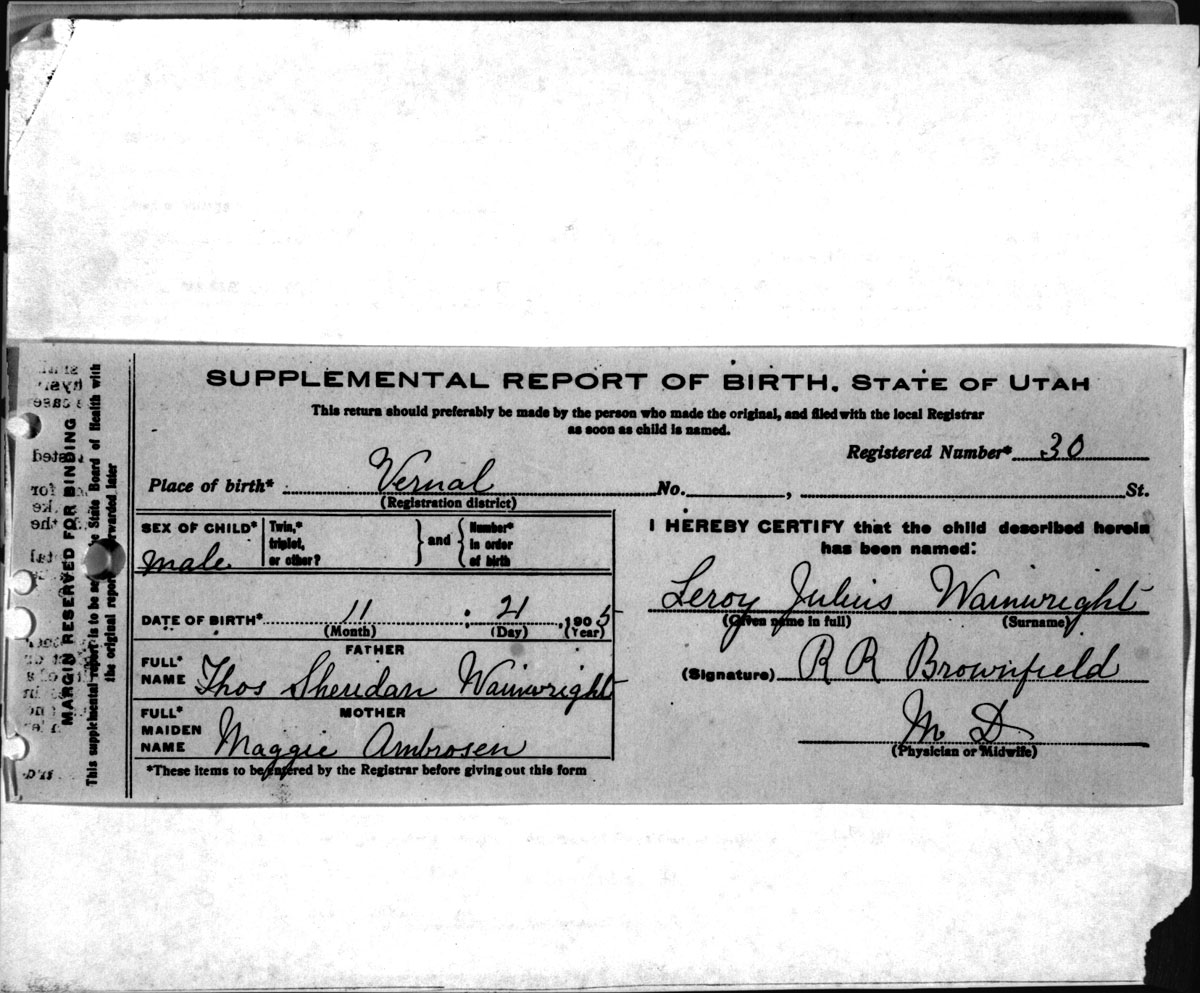 SUPPLEMENTAL REPORT OF BIRTH. STATE OF UTAH
This return should preferably be made by the person who made the original, and filed with the local Registrar
as soon as child is named.
Registered Number* 30
Place of birth* Vernal No. , St.
(Registration district)
SEX OF CHILD* male
Twin,* triplet, or other? } and { Number* in order of birth
DATE OF BIRTH* 11 : 21 , 1905
(Month) (Day) (Year)
FATHER
FULL* NAME Thos Sheridan Wainwright
MOTHER
FULL* MAIDEN NAME Maggie Ambrosen
*These items to be entered by the Registrar before giving out this form
I HEREBY CERTIFY that the child described herein
has been named:
Leroy Julius Wainwright
(Given name in full) (Surname)
(Signature) R R Brownfield
M D
(Physician or Midwife)
MARGIN RESERVED FOR BINDING
This supplemental report is to be se e State Board of Health with
the original repor orwarded later